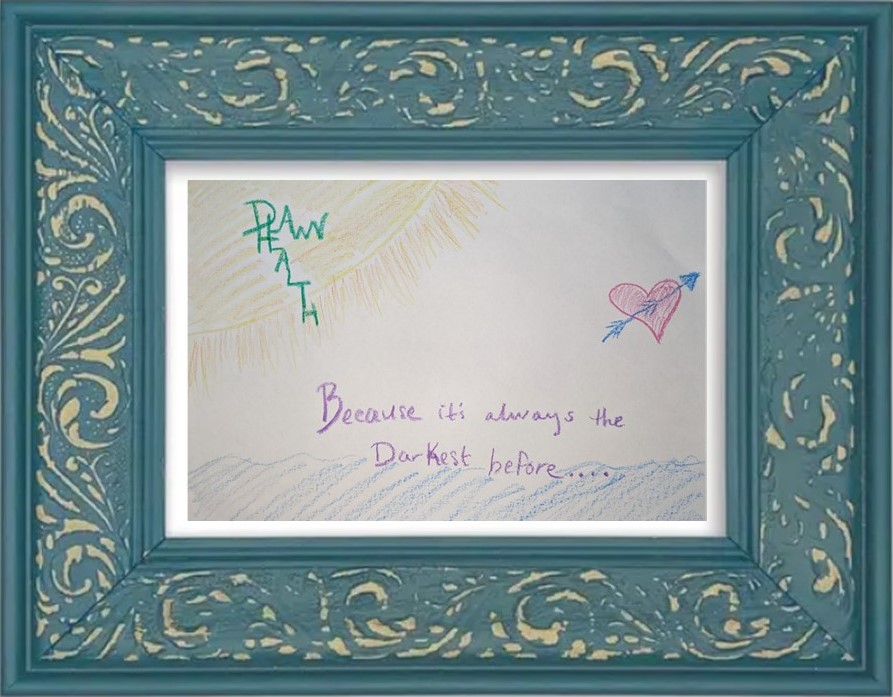 DAWN
HEALTH
Because it's always the
Darkest before....